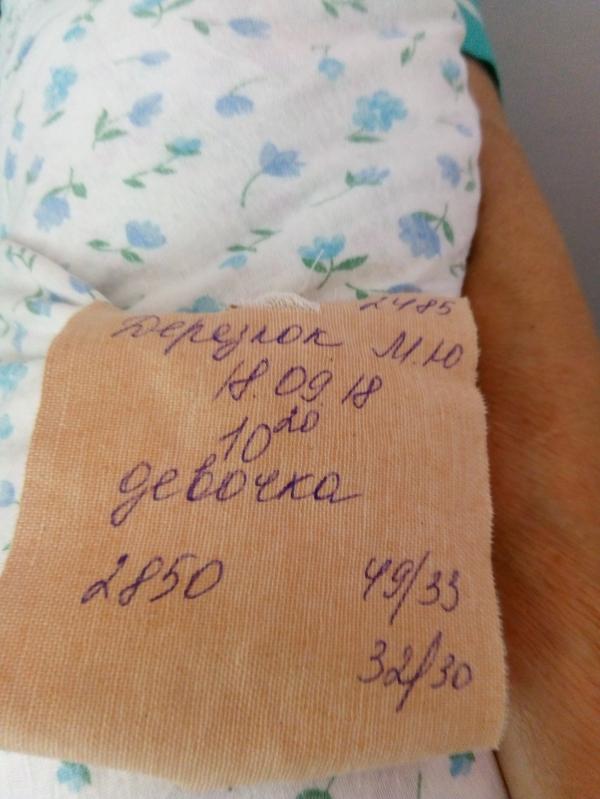 2485
Дерезюк М.Ю
18.09.18
10 20
девочка
2850 49/33
32/30